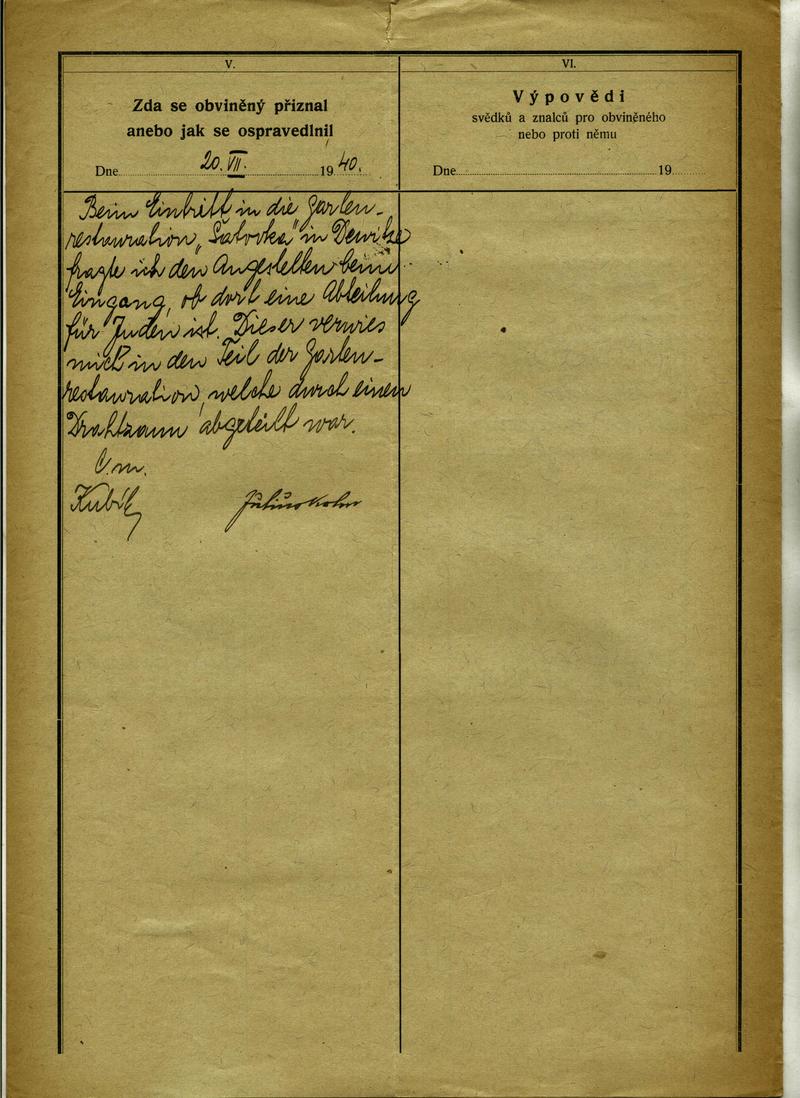 V.
Zda se obviněný přiznal
anebo jak se ospravedlnil
Dne 20. VII. 1940.
Beim Eintritt in die Garten-
restauration „Šatovka" in Dewitz
fragte ich den Angestellten beim
Eingang, ob dort eine Abteilung
für Juden ist. Dieser verwies
mich in den Teil der Garten-
restauration, welche durch einen
Drahtzaun abgeteilt war.
V.m.
Julius Kohn
VI.
Výpovědi
svědků a znalců pro obviněného
nebo proti němu
Dne 19